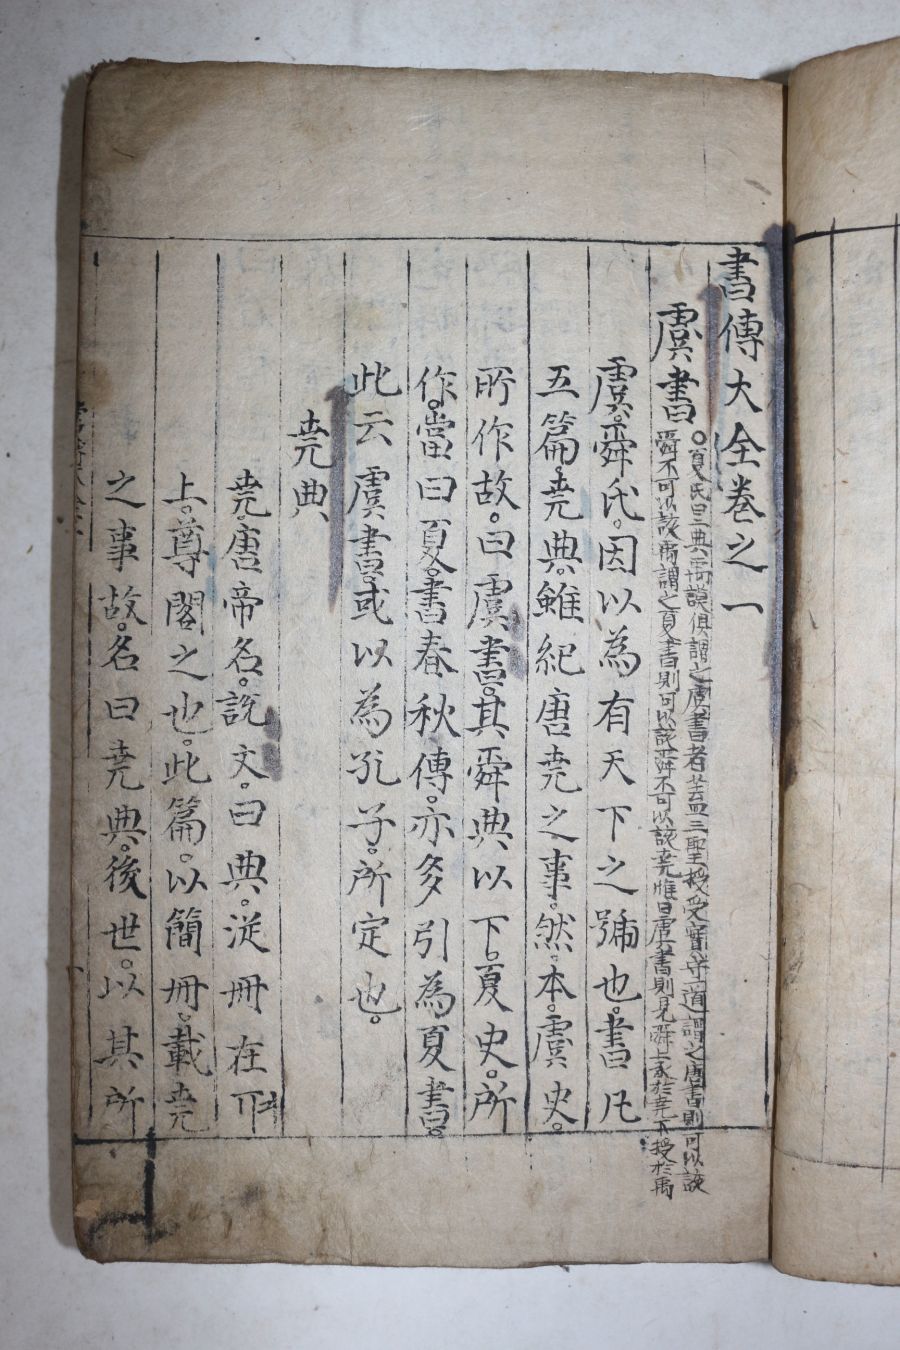 書傳大全卷之一
虞書
。夏氏曰二典禹謨俱謂之虞書者蓋三聖授受實守一道謂之唐書則可以該
舜不可以該禹謂之夏書則可以該舜不可以該堯惟曰虞書則見舜上承於堯下授於禹
虞。舜氏。因以為有天下之號也。書凡
五篇。堯典。雖紀唐堯之事。然本。虞史。
所作故。曰虞書。其舜典以下。夏史。所
作。當曰夏。書春秋傳。亦多引為夏書。
此云虞書。或以為孔子。所定也。
堯典
堯。唐帝名。說文。曰典。從冊在丌
上。尊閣之也。此篇。以簡冊。載堯
之事故。名曰堯典。後世。以其所